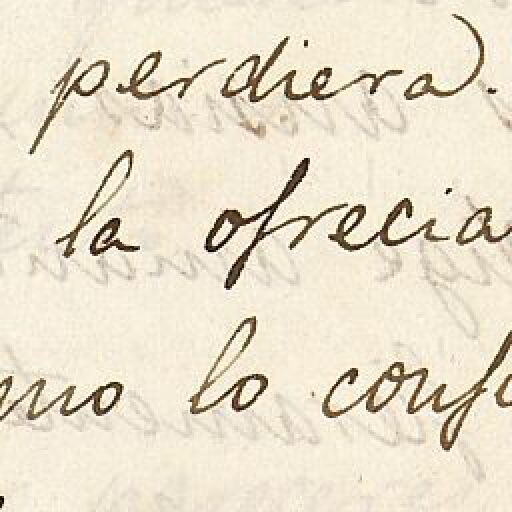 perdiera).
la ofrecia
mo lo conf